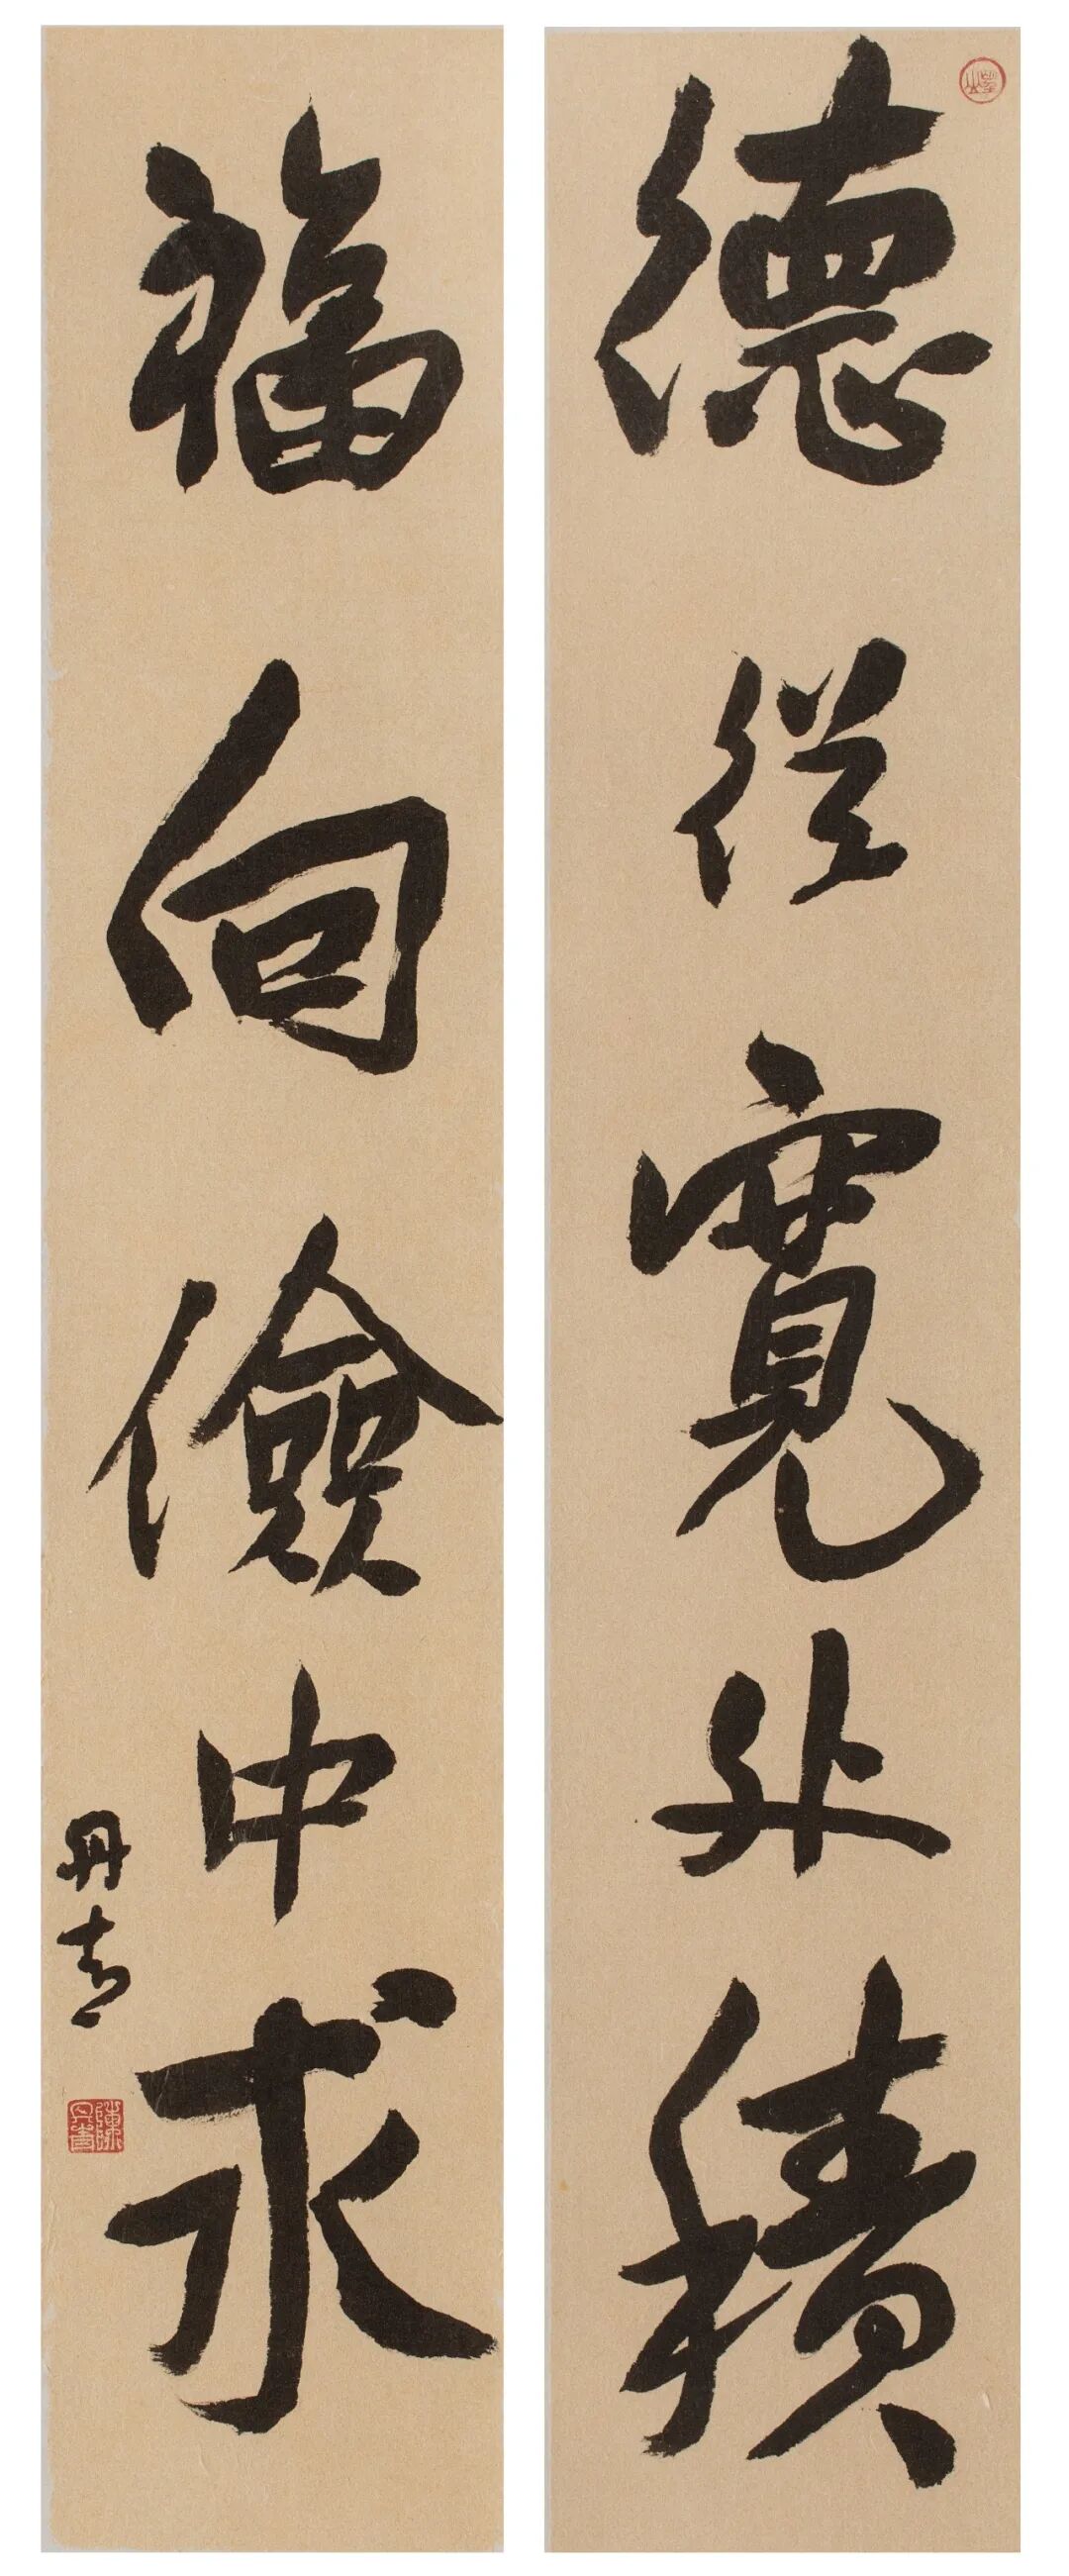 德從寬處積
福向儉中求
丹青